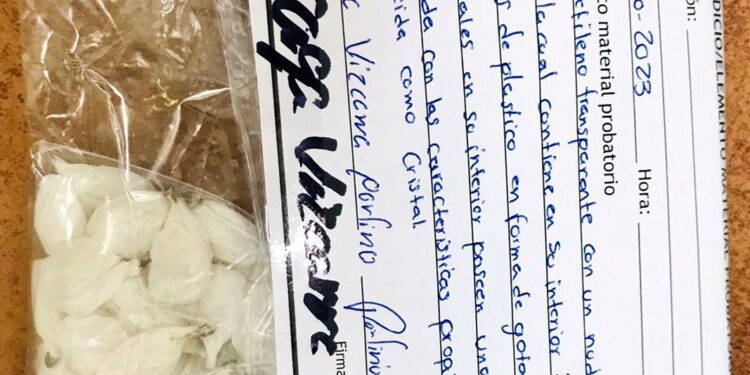 DICIO/ELEMENTO MATERIAL
ión:
o-2023 Hora:
co material probatorio
etileno transparente con un nud
la cual contiene en su interior
s de plastico en forma de gota
ales en su interior poseen una
da con las caracteristicas propi
ida como cristal.
Firma